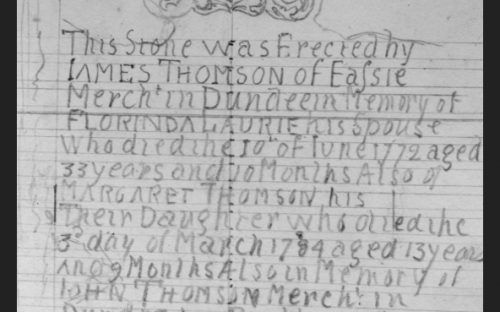 This Stone was Erected by
IAMES THOMSON of Eaſsie
Mercht in Dundee in Memory of
FLORINDA LAURIE his Spouse
who died the 10th of June 1772 aged
33 years and 10 Months Also of
MARGARET THOMSON his
Their Daughter who died the
3d day of March 1784 aged 13 years
And 9 Months Also in Memory of
IOHN THOMSON Mercht in